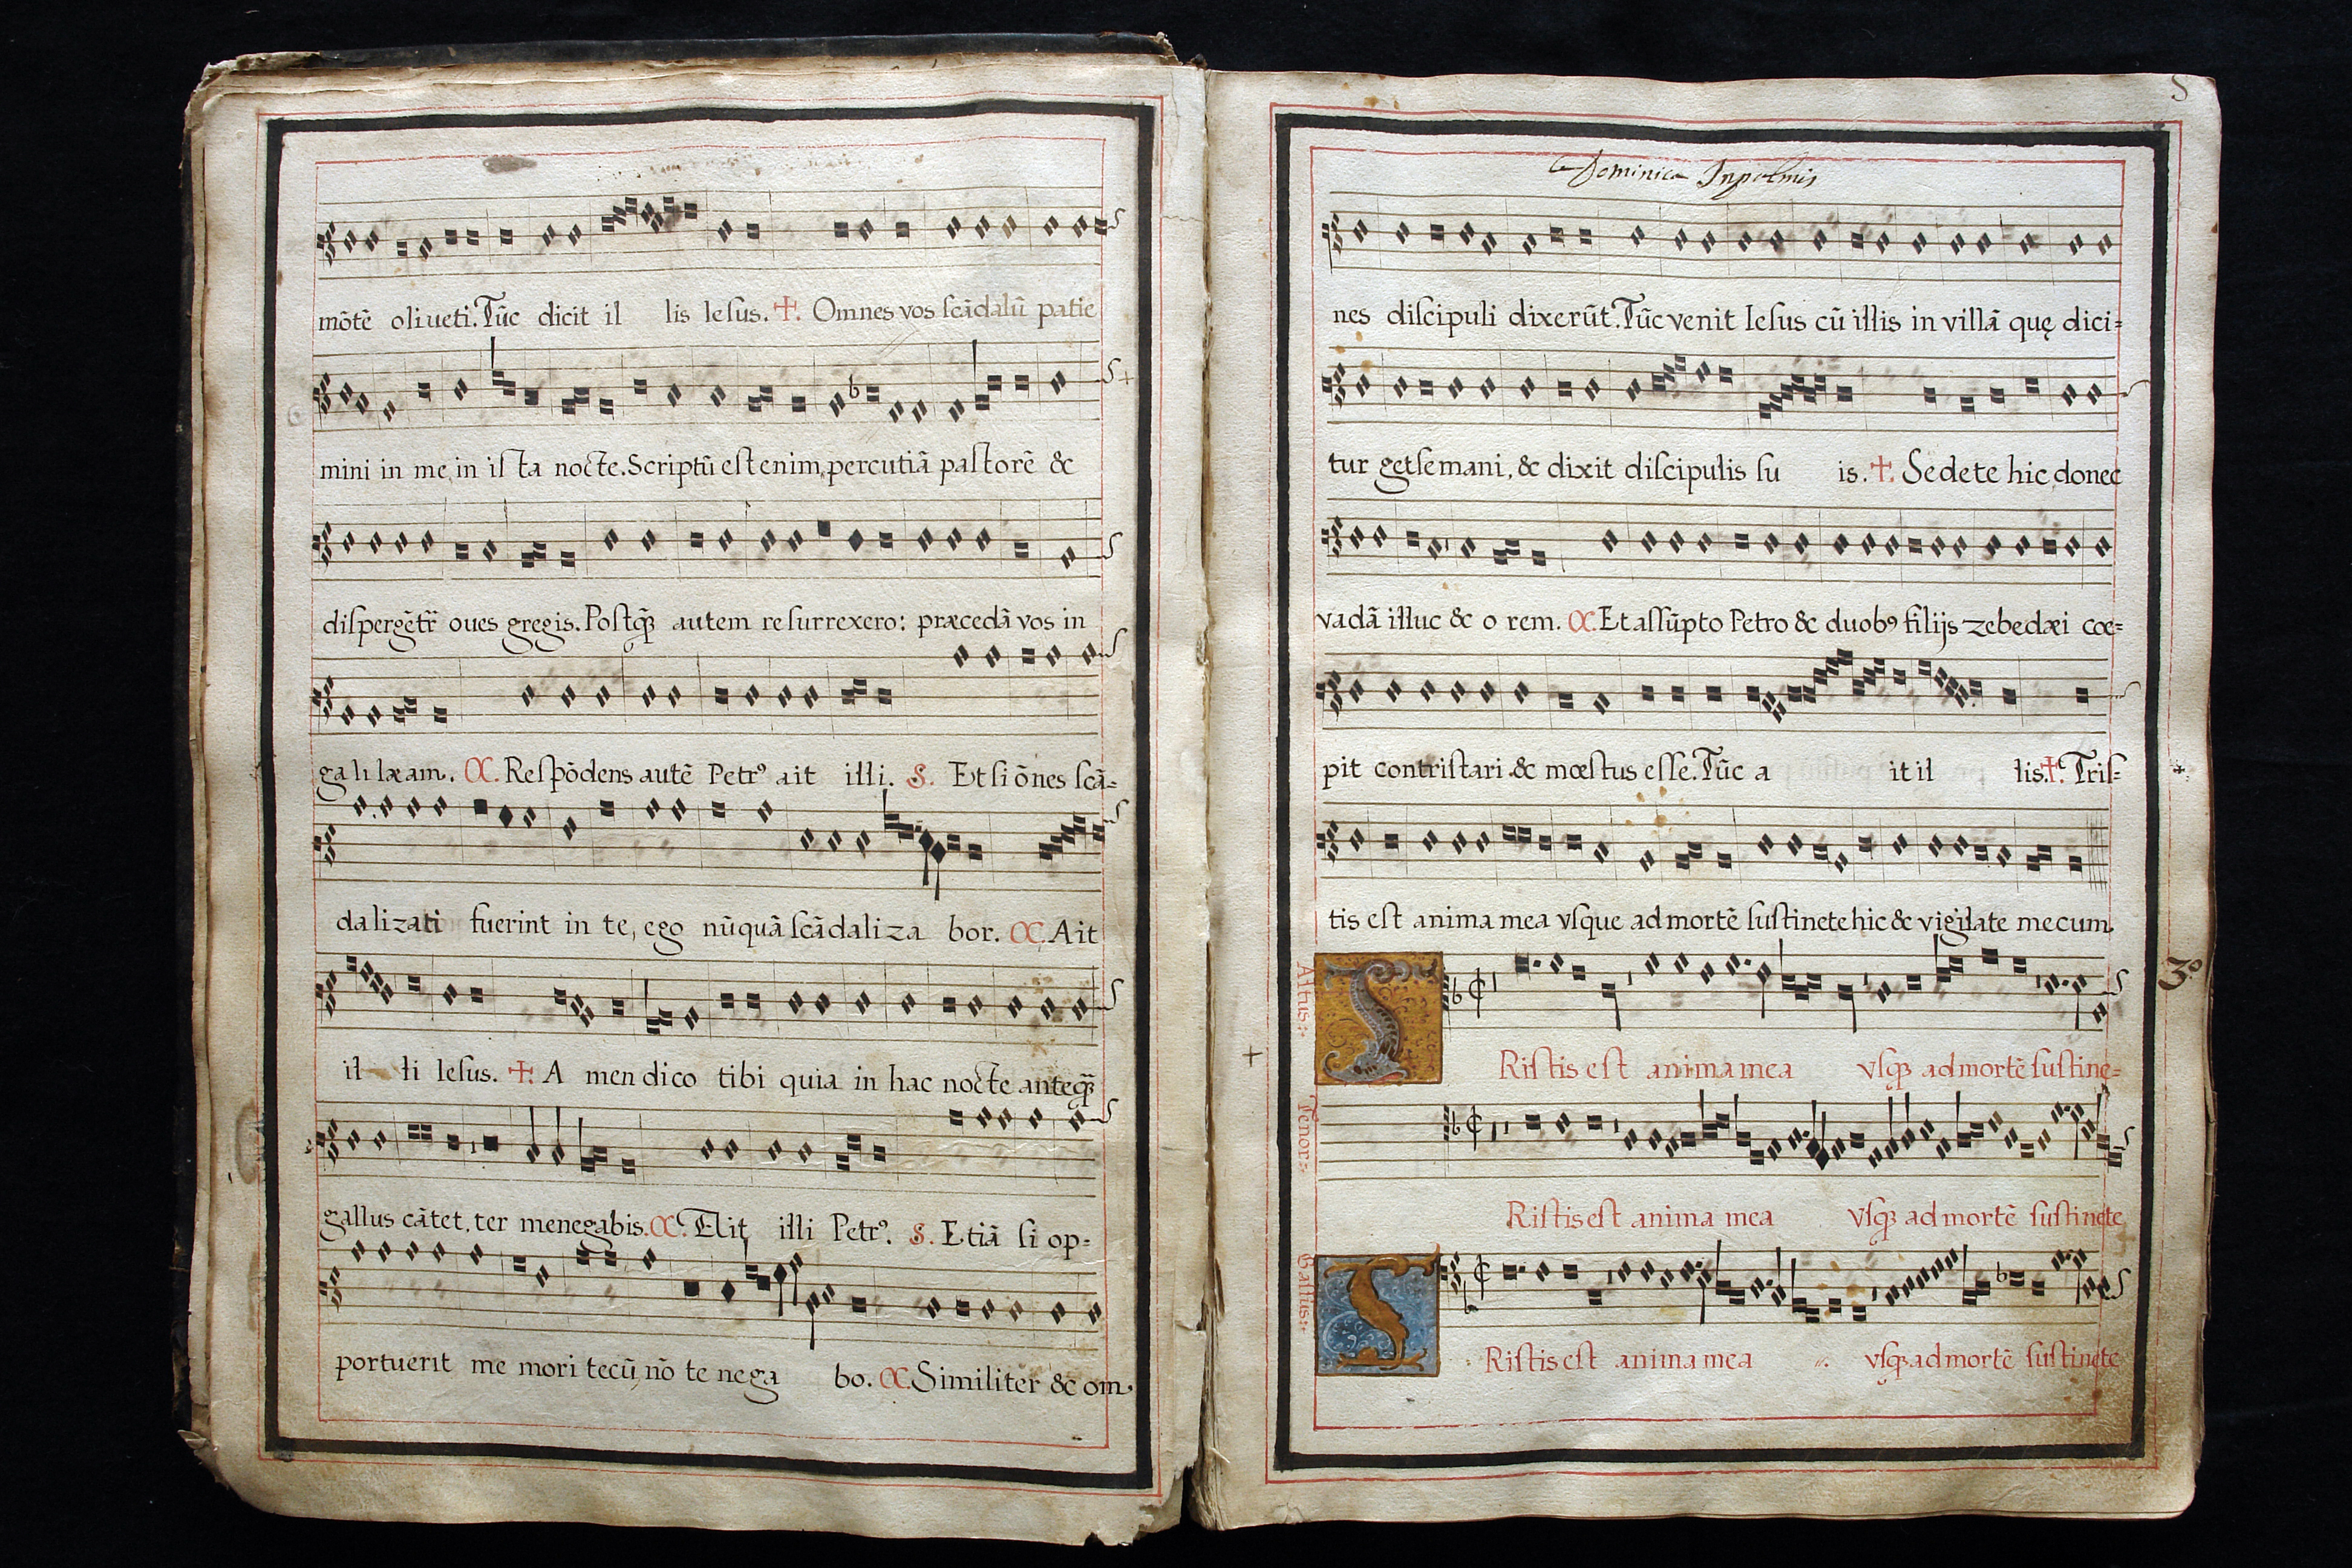 mõtẽ oliueti. Tũc dicit il lis Iesus. ✝. Omnes vos scãdalũ patie
mini in me, in is ta nocte. Scriptũ est enim, percutiã pastorẽ &
dispergẽtr̃ oues gregis. Postq̃ autem resurrexero: præcedã vos in
galilæam. C. Respõdens autẽ Petrꝰ ait illi. S. Et si õnes scã-
dalizati fuerint in te, ego nũquã scãdaliza bor. C. Ait
il li Iesus. ✝. A men dico tibi quia in hac nocte anteq̃
gallus cãtet, ter me negabis. C. Elit illi Petrꝰ. S. Etiã si op-
portuerit me mori tecũ, nõ te nega bo. C. Similiter & om.
S
Dominica In palmis
nes discipuli dixerũt. Tũc venit Iesus cũ illis in villã quę dici-
tur getsemani, & dixit discipulis su is. ✝. Sedete hic, donec
vadã illuc & o rem. C. Et assũpto Petro & duobꝰ filijs zebedæi cœ-
pit contristari & mœstus esse. Tũc a it il lis. ✝. Tris-
tis est anima mea vsque ad mortẽ sustinete hic & vigilate mecum.
3º
Altus
Ristis est anima mea vsqꝫ ad mortẽ sustine-
Tenor
Ristis est anima mea vsqꝫ ad mortẽ sustinete
Bassus
T
Ristis est anima mea vsqꝫ ad mortẽ sustinete